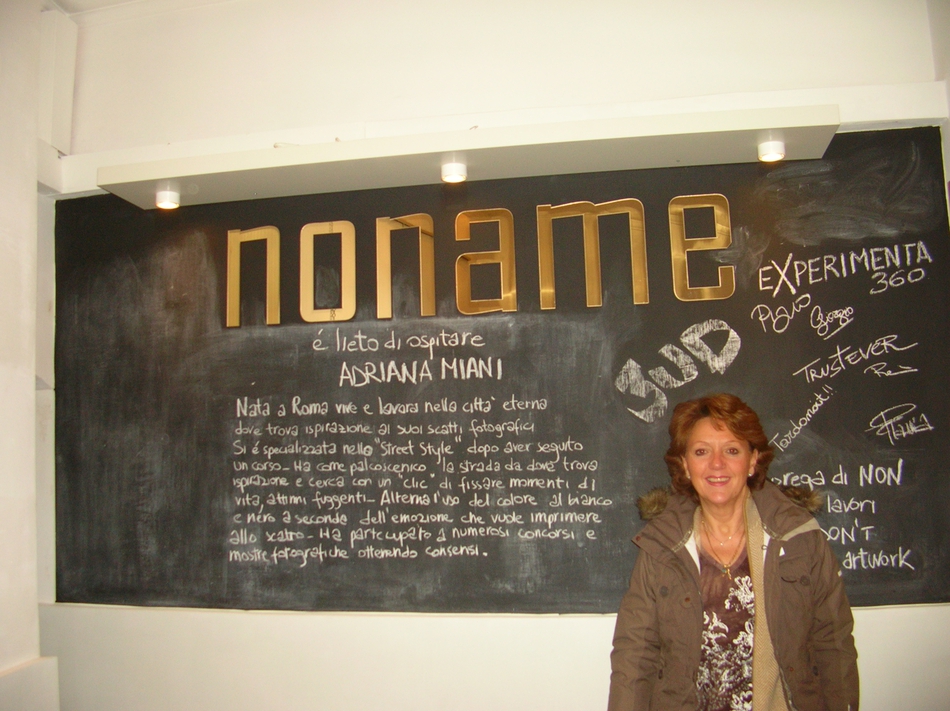 noname
é lieto di ospitare
ADRIANA MIANI
Nata a Roma vive e lavora nella citta' eterna
dove trova ispirazione ai suoi scatti fotografici
Si é specializzata nello "Street Style" dopo aver seguito
un corso_ Ha come palcoscenico, la strada da dove trova
ispirazione e cerca con un "clic" di fissare momenti di
vita, attimi fuggenti_ Alterna l'uso del colore al bianco
e nero a seconda dell'emozione che vuole imprimere
allo scatto_ Ha partecupato a numerosi concorsi e
mostre fotografiche ottenendo consensi.
SUD
EXPERIMENTA
360
Giorgio
TRUSTEVER
Tardomast!!
prega di NON
lavori
DON'T
artwork